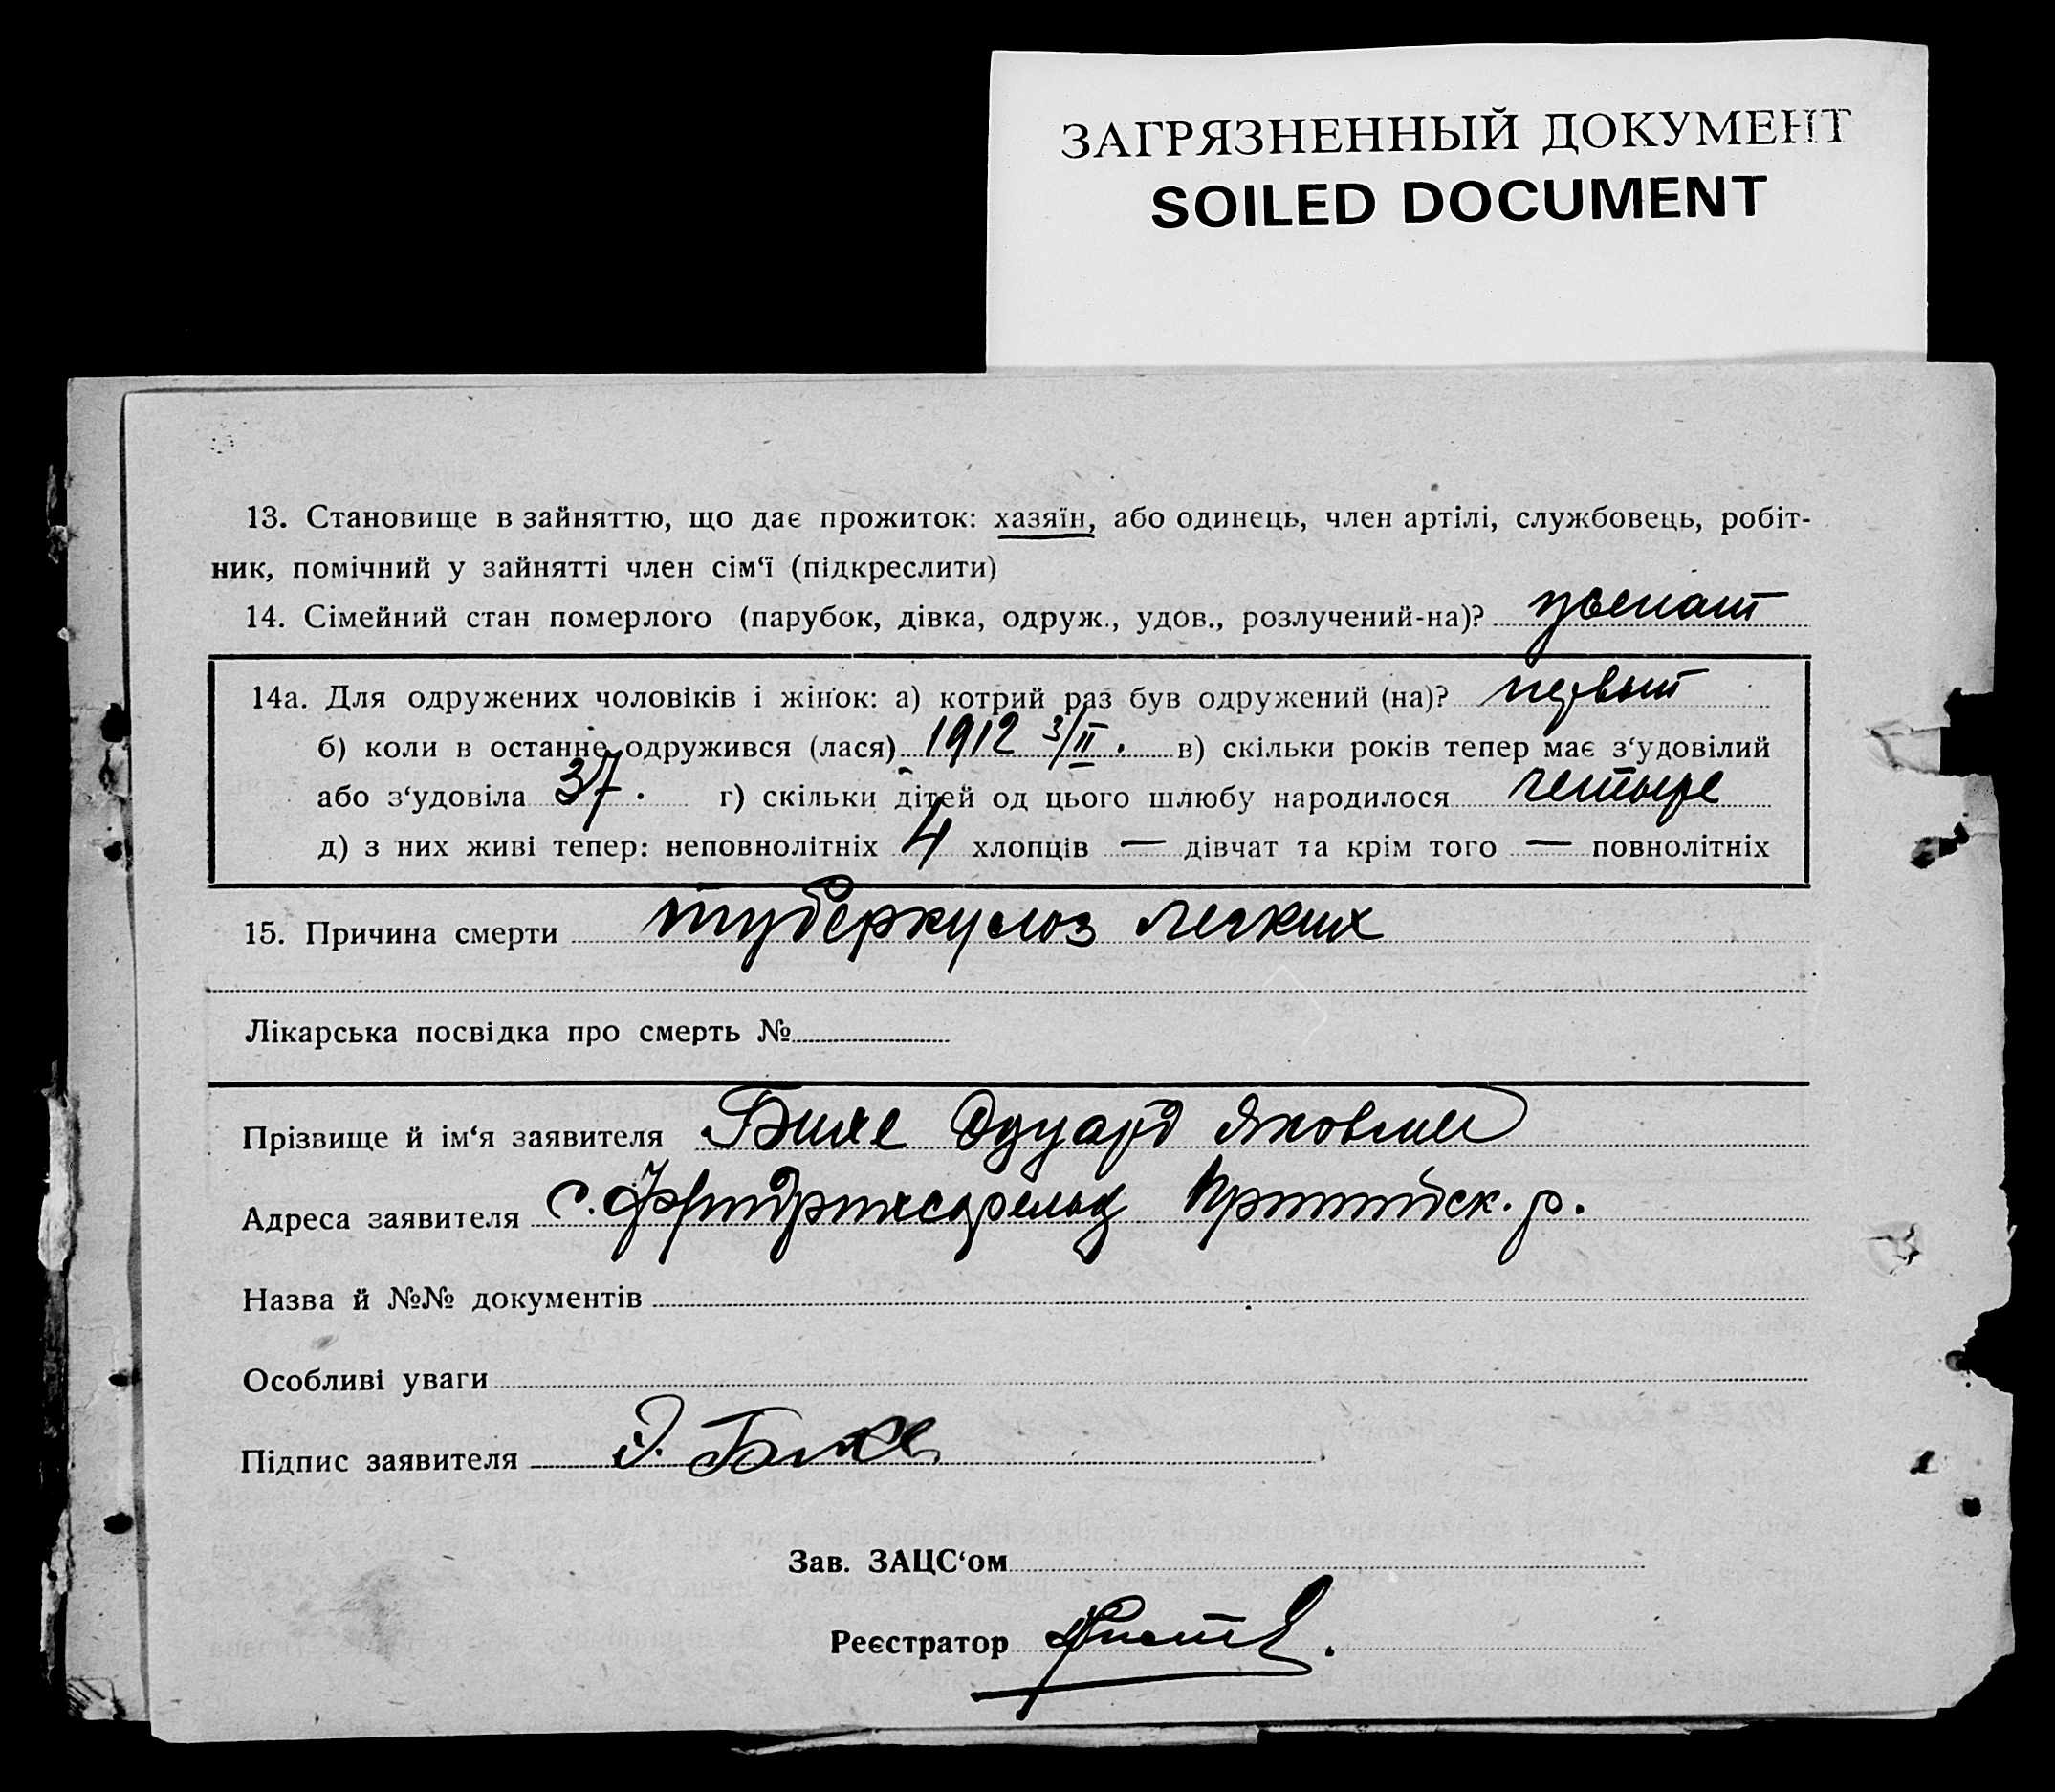 ЗАГРЯЗНЕННЫЙ ДОКУМЕНТ
SOILED DOCUMENT
13. Становище в зайняттю, що дає прожиток: хазяїн, або одинець, член артілі, службовець, робіт-
ник, помічний у зайнятті член сім‘ї (підкреслити)
14. Сімейний стан померлого (парубок, дівка, одруж., удов., розлучений-на)? женат
14а. Для одружених чоловіків і жінок: а) котрий раз був одружений (на)? первый
б) коли в останнє одружився (лася) 1912 3/II. в) скільки років тепер має з‘удовілий
або з‘удовіла 37. г) скільки дітей од цього шлюбу народилося четыре
д) з них живі тепер: неповнолітніх 4 хлопців — дівчат та крім того — повнолітніх
15. Причина смерти туберкулоз легких
Лікарська посвідка про смерть №
Прізвище й ім‘я заявителя Бихе Эдуард Яковлев
Адреса заявителя с. Фридрихсфельд Пришибск. р.
Назва й №№ документів
Особливі уваги
Підпис заявителя Э. Бихе
Зав. ЗАЦС‘ом
Реєстратор